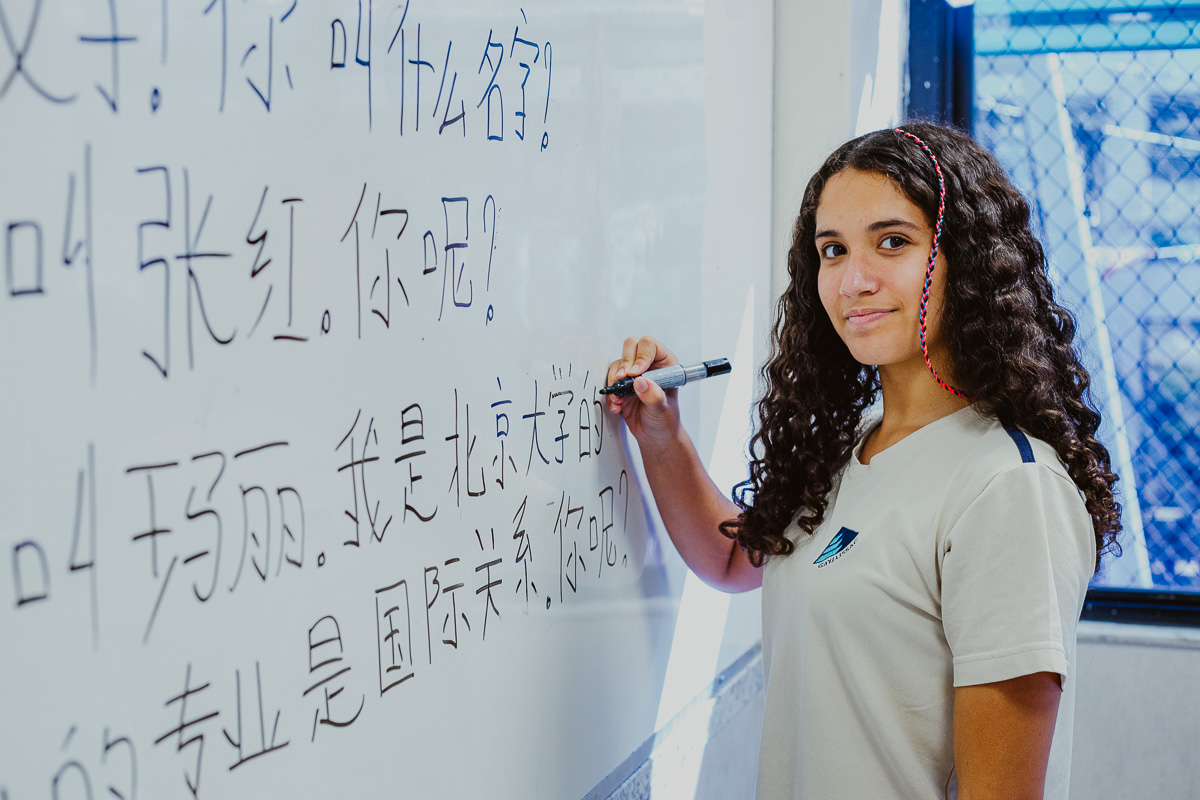 好！你叫什么名字？
叫张红。你呢？
叫玛丽。我是北京大学的
的专业是国际关系。你呢？